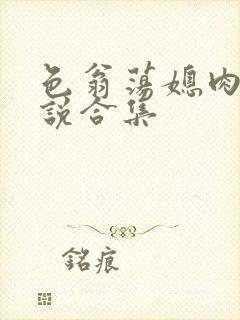 色翁荡媳肉
説合集
銘痕